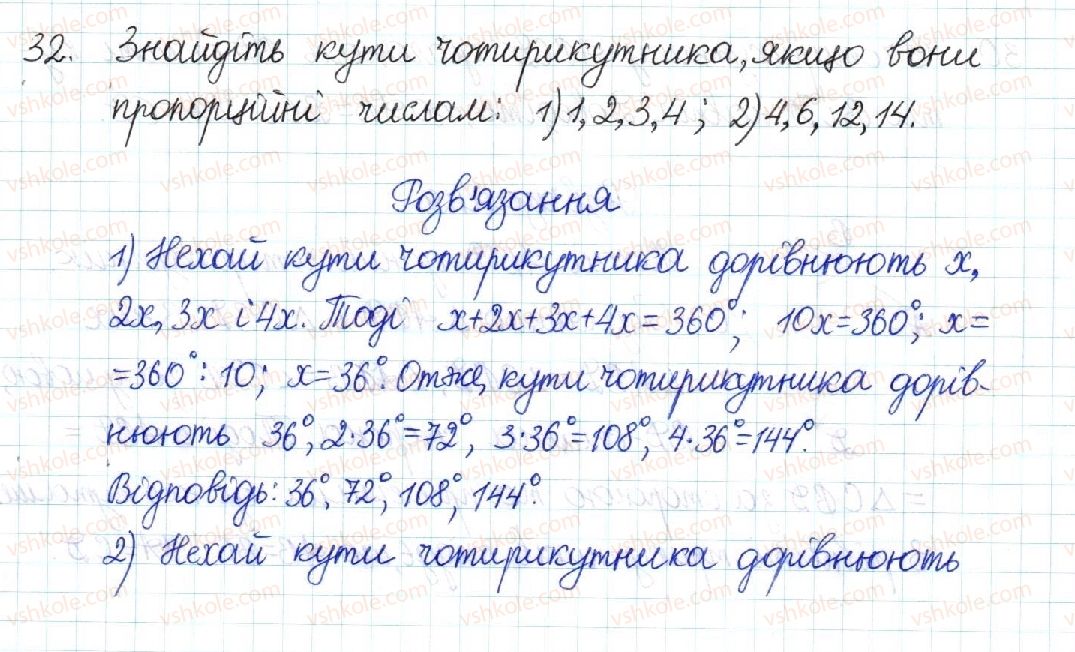 32. Знайдіть кути чотирикутника, якщо вони
пропорційні числам: 1) 1, 2, 3, 4; 2) 4, 6, 12, 14.
Розв'язання
1) Нехай кути чотирикутника дорівнюють x,
2x, 3x і 4x. Тоді x+2x+3x+4x=360°; 10x=360°; x=
=360°:10; x=36°. Отже, кути чотирикутника дорів-
нюють 36°, 2·36°=72°, 3·36°=108°, 4·36°=144°.
Відповідь: 36°, 72°, 108°, 144°.
2) Нехай кути чотирикутника дорівнюють